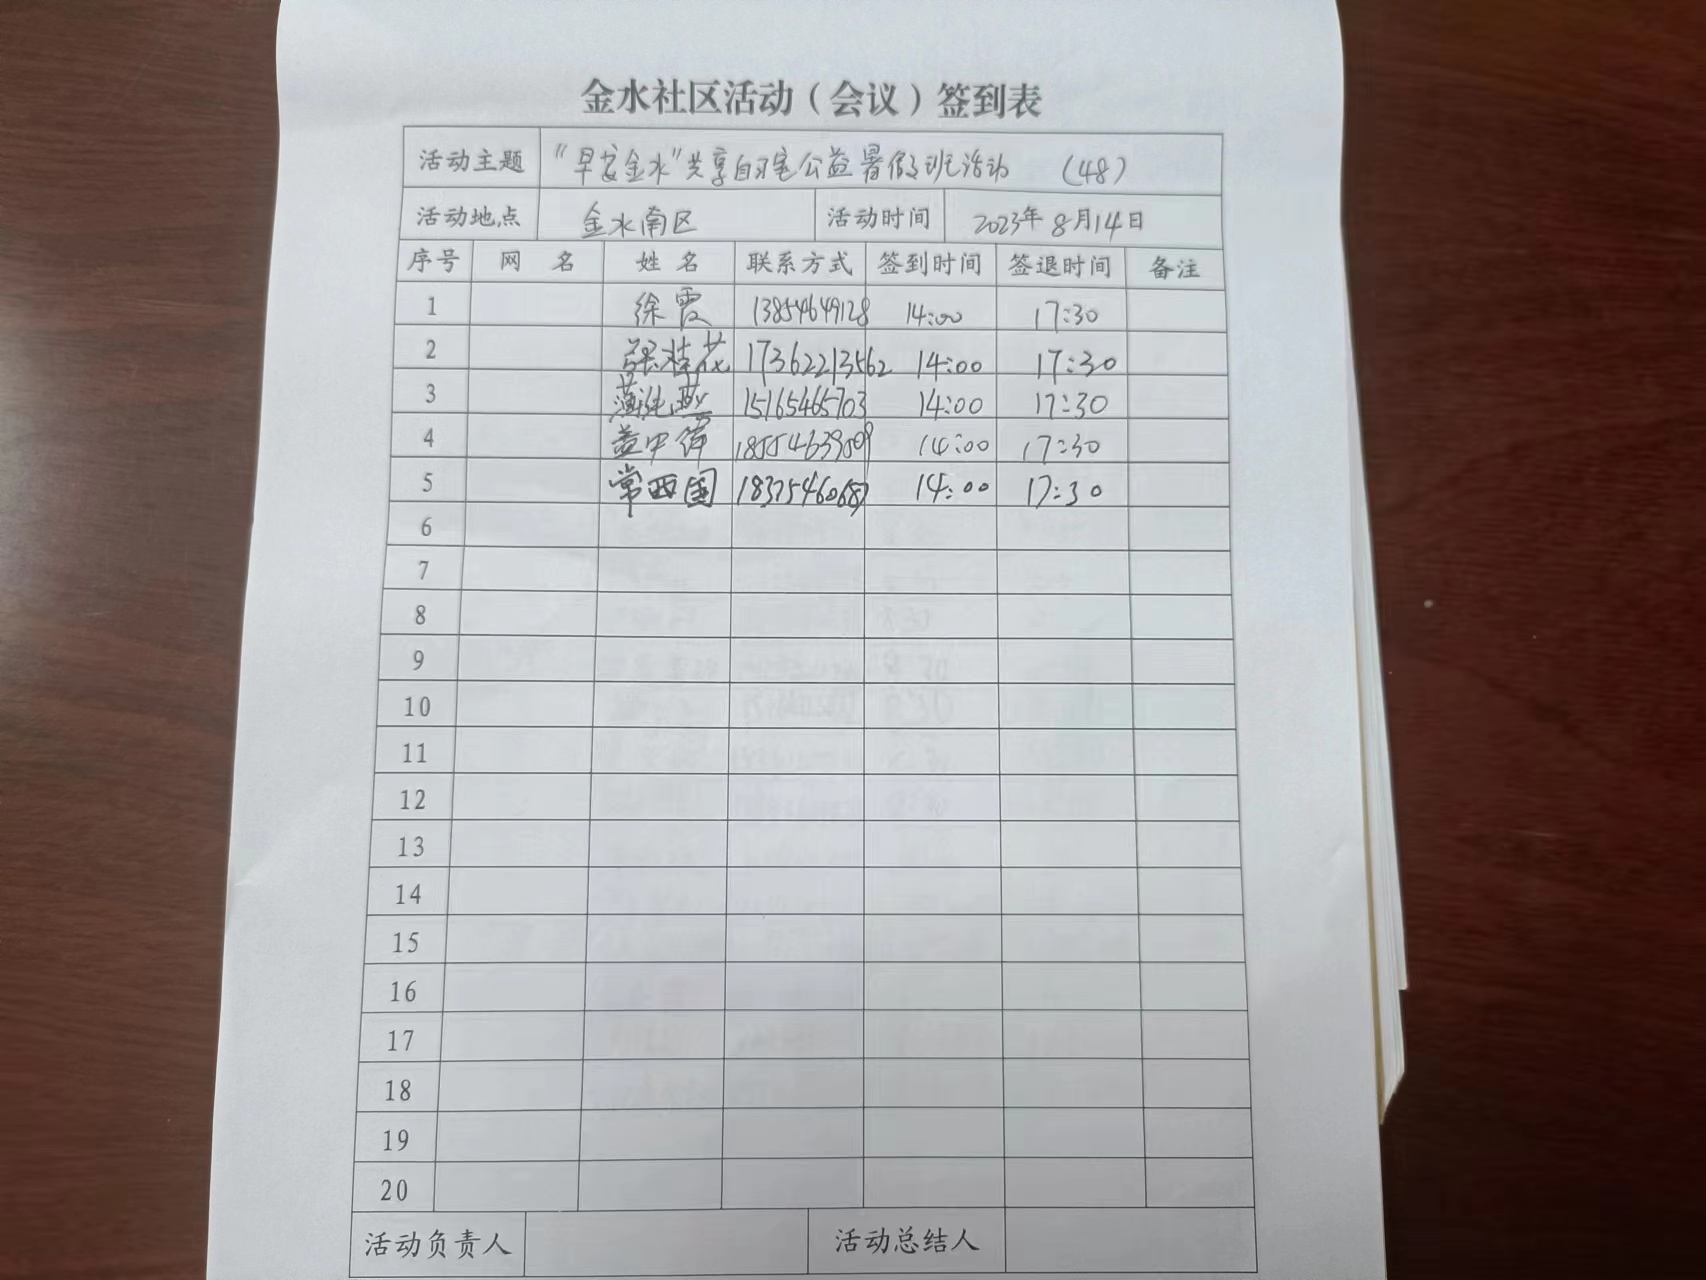 金水社区活动（会议）签到表
活动主题 “早安金水”共享自习室公益暑假班活动 （48）
活动地点 金水南区 活动时间 2023年8月14日
序号 网 名 姓 名 联系方式 签到时间 签退时间 备注
1 徐霞 13854649128 14:00 17:30
2 张桂花 17362213562 14:00 17:30
3 15165465703 14:00 17:30
4 18554639509 14:00 17:30
5 常西国 14:00 17:30
6
7
8
9
10
11
12
13
14
15
16
17
18
19
20
活动负责人 活动总结人